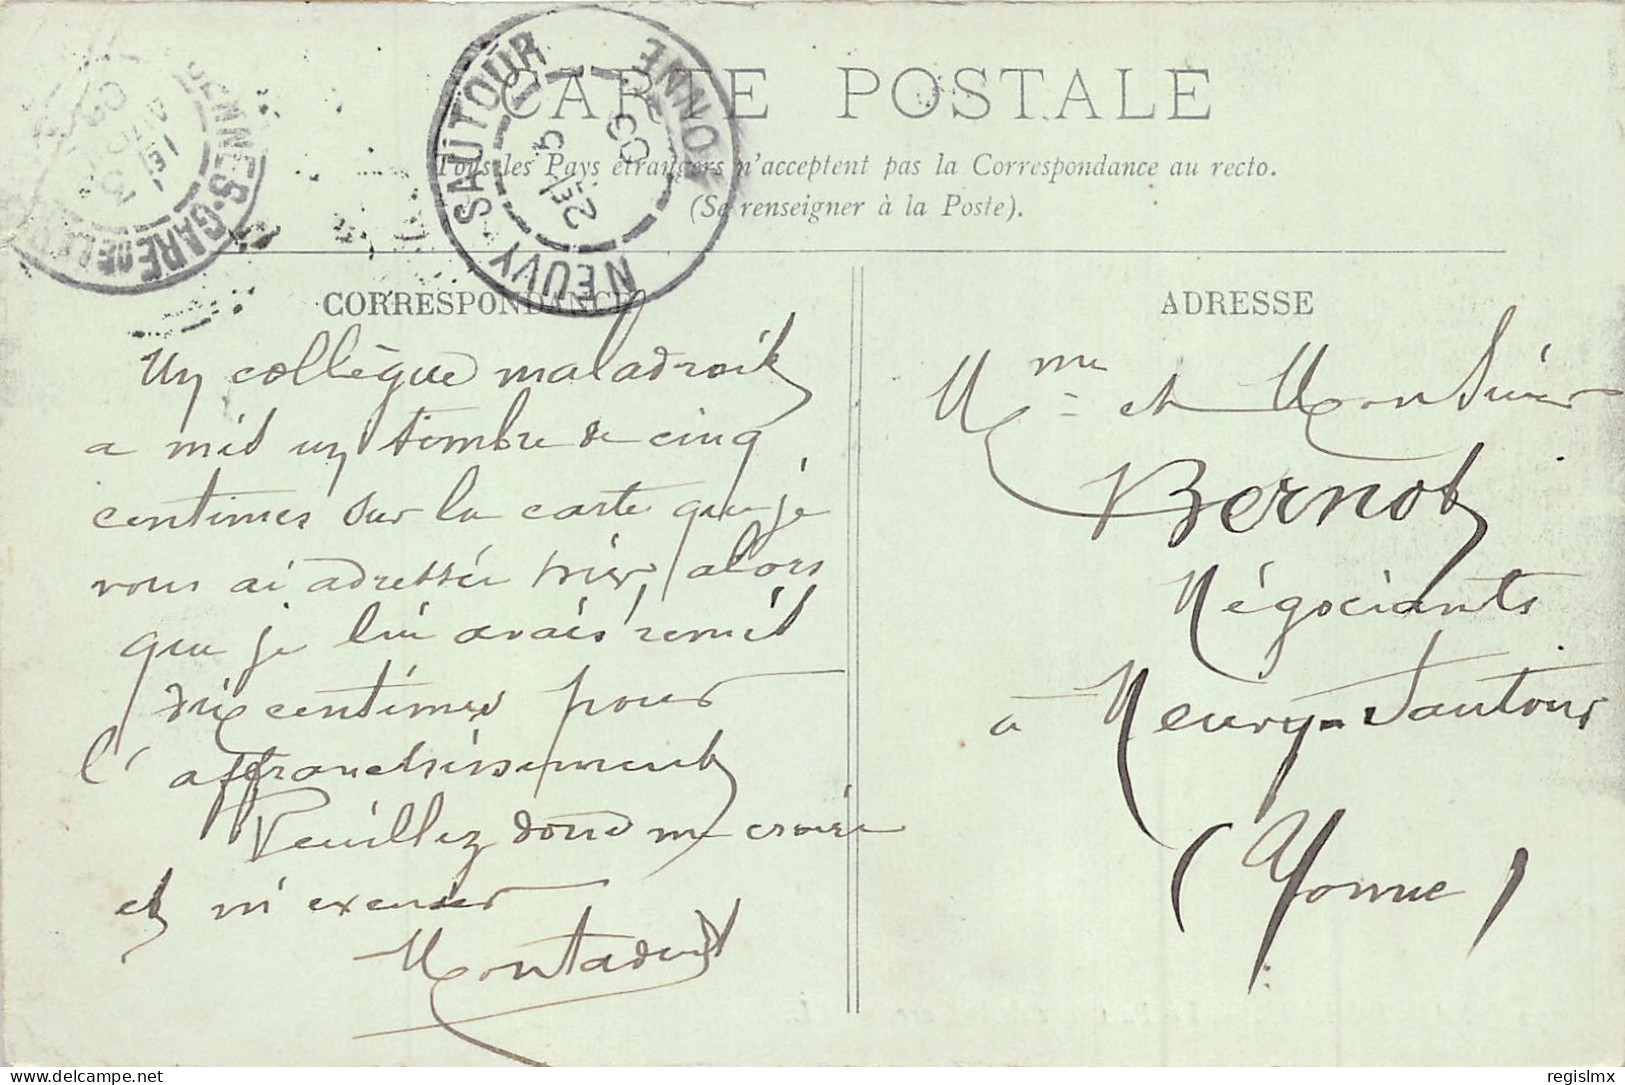 CARTE POSTALE
Tous les Pays étrangers n'acceptent pas la Correspondance au recto.
(Se renseigner à la Poste).
NEUVY-SAUTOUR
YONNE
GARE
CORRESPONDANCE
Un collègue maladroit
a mis un timbre de cinq
centimes sur la carte que je
vous ai adressée hier, alors
que je lui avais remit
dix centimes pour
l'affranchissement
Veuillez donc me croire
et m'excuser
ADRESSE
Mme et Monsieur
Bernot
Négociants
à Neuvy-Sautour
(Yonne)
delcampe.net
regislmx